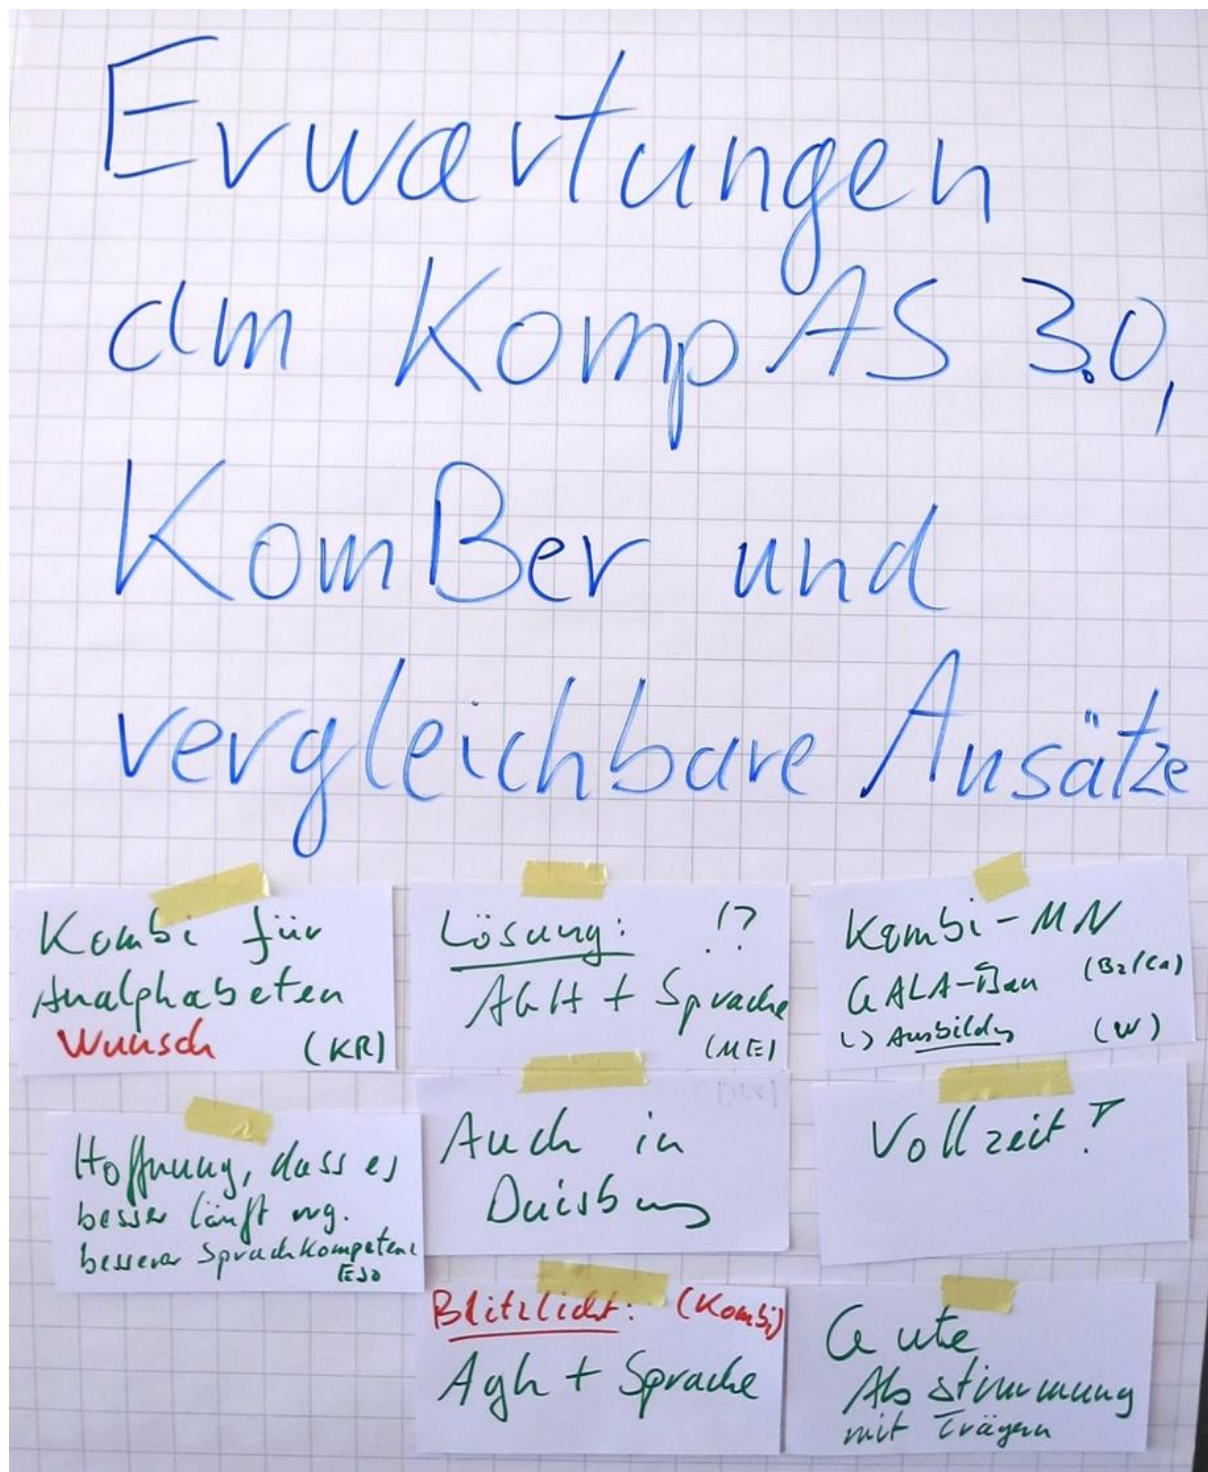 Erwartungen
am KompAS 3.0,
KomBer und
vergleichbare Ansätze
Kombi für
Analphabeten
Wunsch (KR)
Lösung: !?
AGH + Sprache
(ME)
Kombi-MN
GALA-Bau (B2/Ca)
↳ Ausbildg (W)
Hoffnung, dass es
besser läuft wg.
besserer Sprachkompetenz
Auch in
Duisburg
Vollzeit?
Blitzlicht: (Kombi)
Agh + Sprache
Gute
Abstimmung
mit Trägern